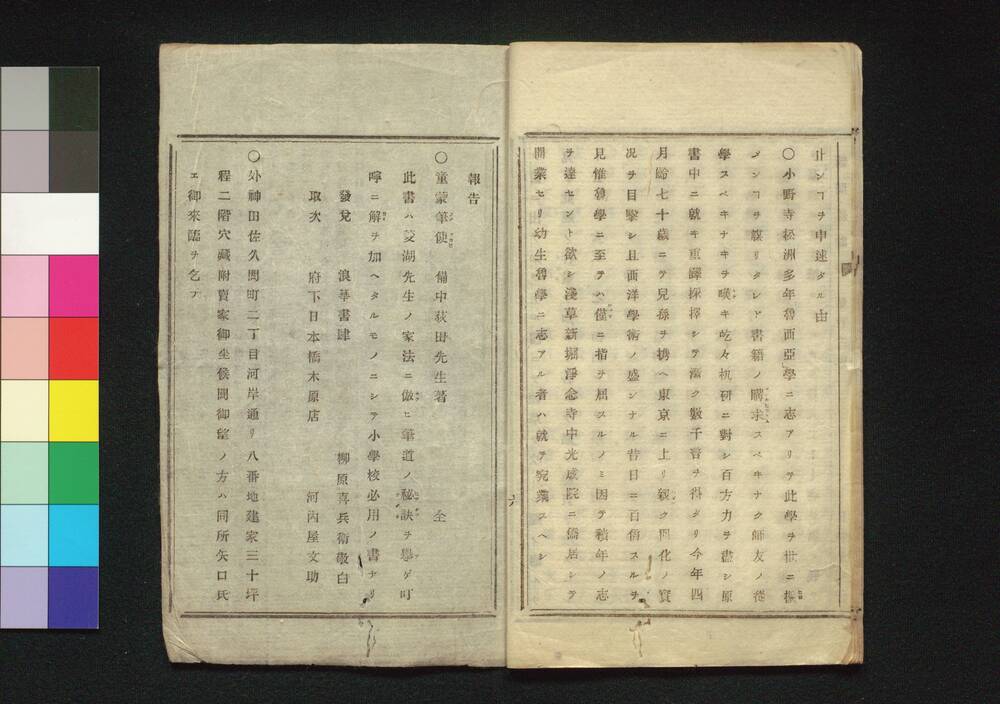 止ンコヲ申達タル由
〇小野寺松洲多年魯西亞學ニ志アリテ此學ヲ世ニ擴
メンコヲ謀リタレド書籍ノ購求スベキナク師友ノ從
學スベキナキヲ嘆キ屹々机研ニ對シ百方力ヲ盡シ原
書中ニ就キ重譯採擇シテ漸ク數千言ヲ得タリ今年四
月齡七十歲ニテ兒孫ヲ携ヘ東京ニ上リ親ク開化ノ實
况ヲ目擊シ且西洋學術ノ盛ンナル昔日ニ百倍スルヲ
見惟魯學ニ至テハ僅ニ指ヲ屈スルノミ因テ積年ノ志
ヲ達セント欲シ淺草新堀淨念寺中光感院ニ僑居シテ
開業セリ幼生魯學ニ志アル者ハ就テ究業スヘシ
六
報告
〇童蒙筆使　備中荻田先生著　全
此書ハ菱湖先生ノ家法ニ倣ヒ筆道ノ秘訣ヲ擧ゲ叮
嚀ニ解ヲ加ヘタルモノニシテ小學校必用ノ書ナリ
發兌　浪華書肆　柳原喜兵衛敬白
取次　府下日本橋木原店　河內屋文助
〇外神田佐久間町二丁目河岸通リ八番地建家三十坪
程二階穴藏附賣家御坐候間御望ノ方ハ同所矢口氏
エ御來臨ヲ乞フ